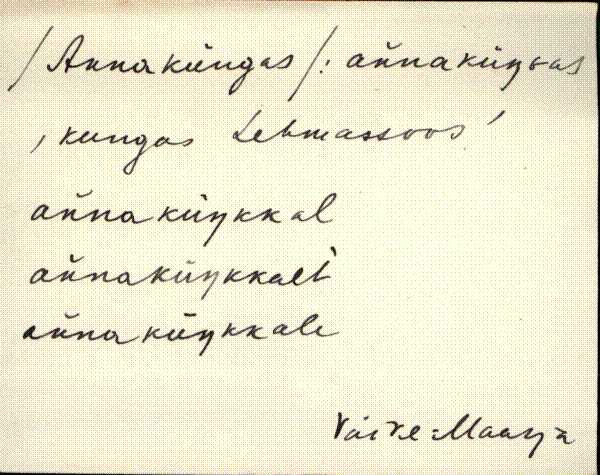 /Annaküngas/: ańnaküŋGas
, küngas Lehmassoos'
ańnaküŋkkal
ańnaküŋkkalt
ańnaküŋkkale
Väike-Maarja